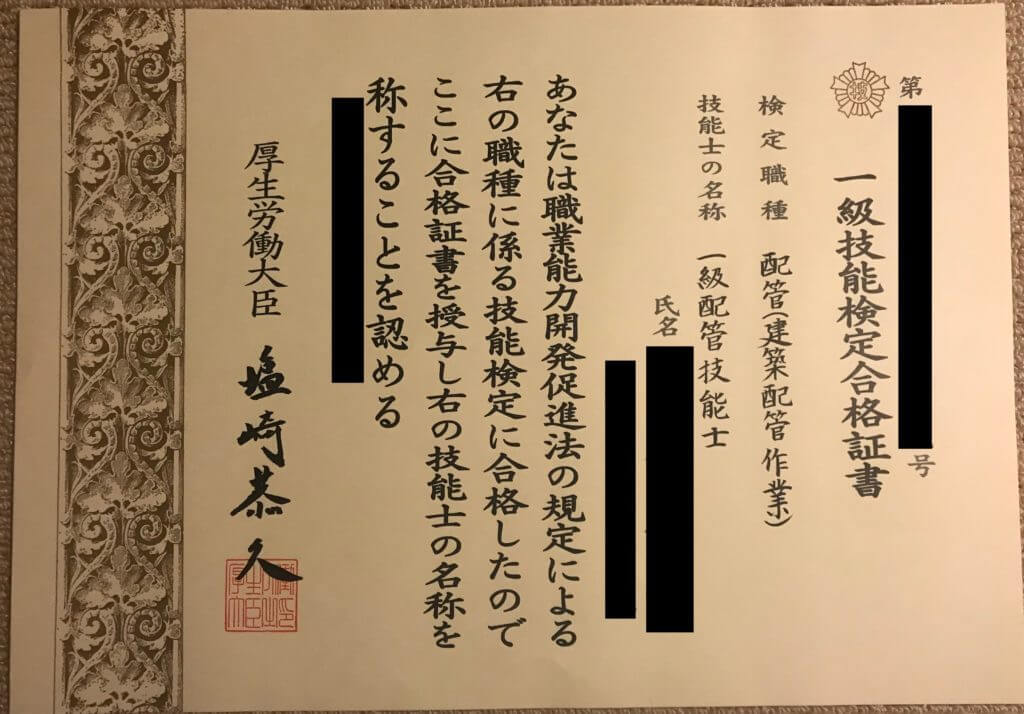 第
号
一級技能検定合格証書
検定職種 配管(建築配管作業)
技能士の名称 一級配管技能士
氏名
あなたは職業能力開発促進法の規定による
右の職種に係る技能検定に合格したので
ここに合格証書を授与し右の技能士の名称を
称することを認める
厚生労働大臣 塩崎恭久